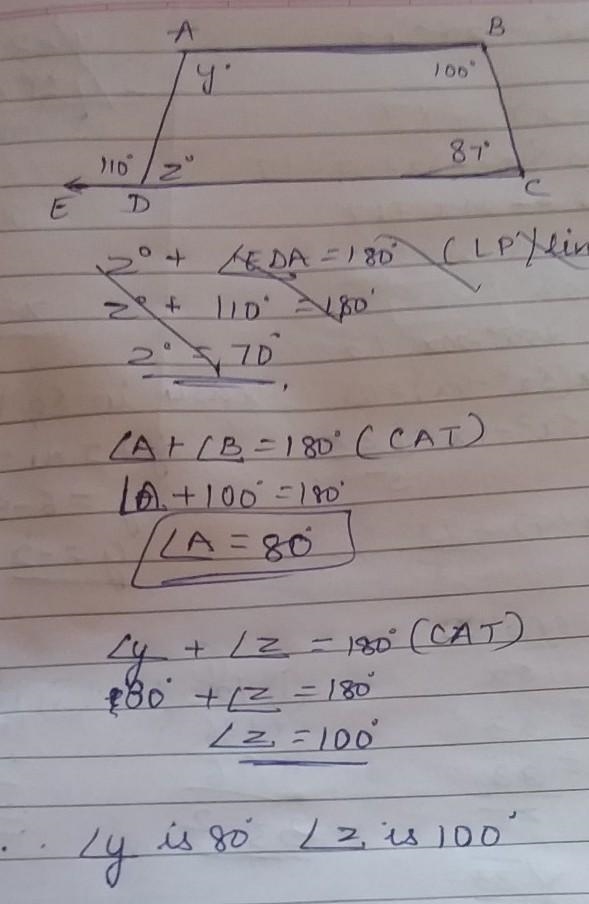 A B
y° 100°
110° z° 87°
E D C
z° + ∠EDA = 180° (LP) lin
z° + 110° = 180°
z° = 70°
∠A + ∠B = 180° (CAT)
∠A + 100° = 180°
∠A = 80°
∠y + ∠z = 180° (CAT)
80° + ∠z = 180°
∠z = 100°
∴ ∠y is 80° ∠z is 100°